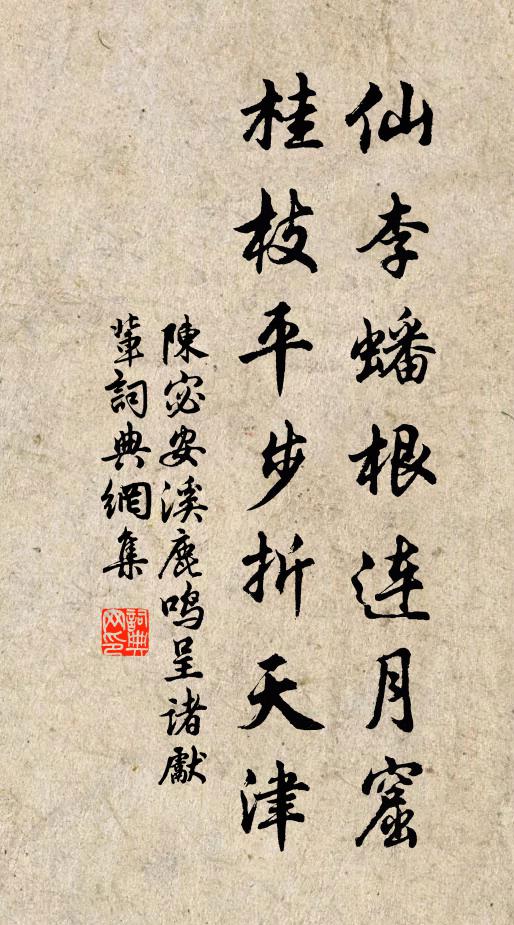 仙李蟠根连月窟
桂枝平步折天津
陳宓安溪鹿鸣呈诸獻
輩詞典網集
詞典网印